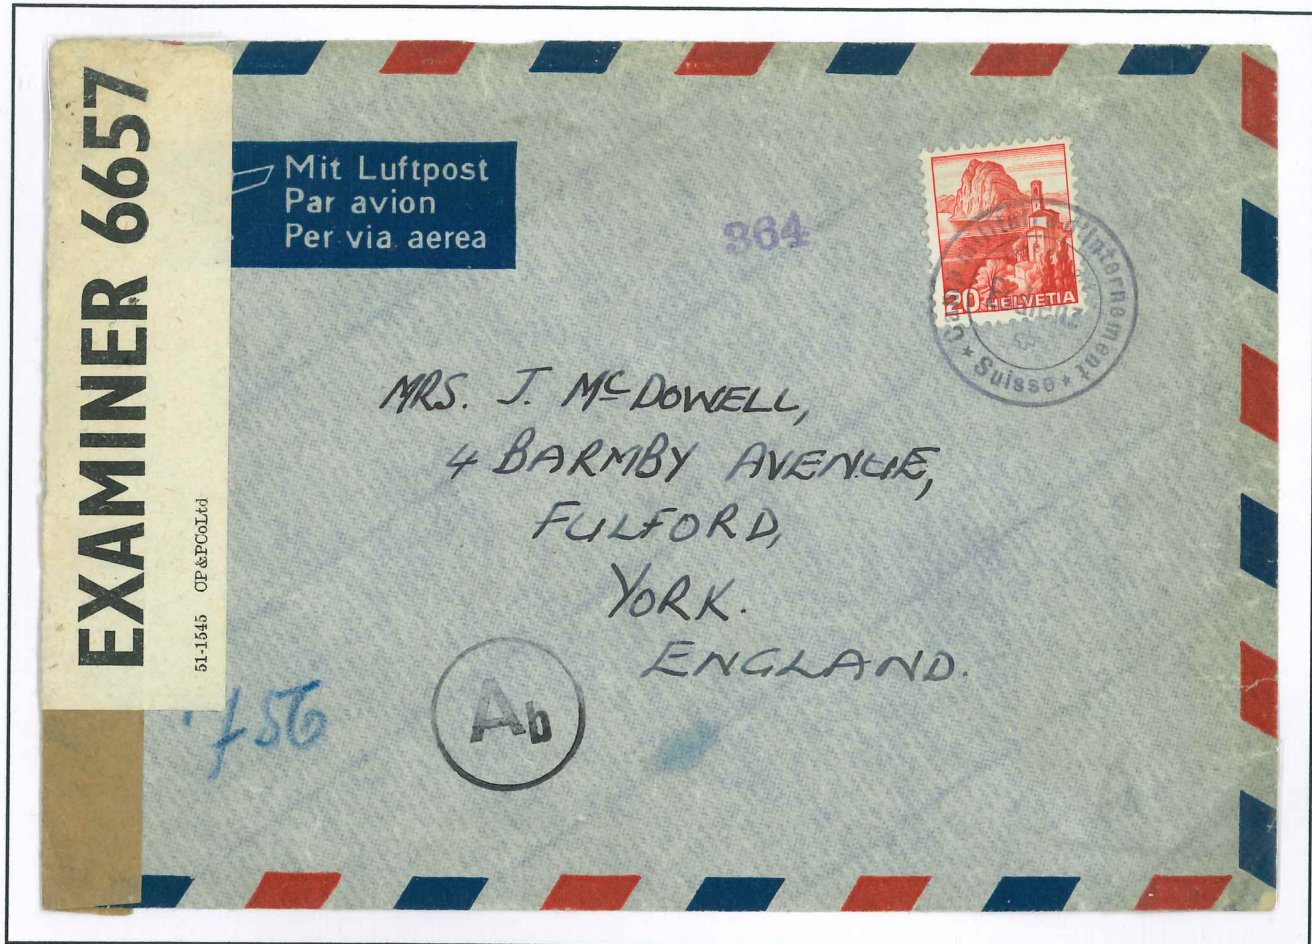 EXAMINER 6657
51-1545 CP&PCoLtd
Mit Luftpost
Par avion
Per via aerea
364
20 HELVETIA
d'Internement
* Suisse *
MRS. J. McDOWELL,
4 BARMBY AVENUE,
FULFORD,
YORK.
ENGLAND.
Ab